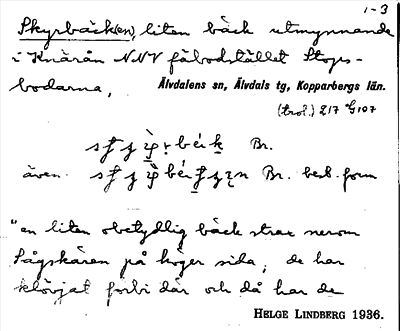 1-3
Skyrbäck(en), liten bäck utmynnande
i Knärån NNV fäbodstället Stops-
bodarna,
Älvdalens sn, Älvdals tg, Kopparbergs län.
(trol.) 217 G 107
Br.
även Br. best. form
"en liten obetydlig bäck strax nerom
Sågskären på höger sida, de har
klövjat förbi där och då har de
HELGE LINDBERG 1936.